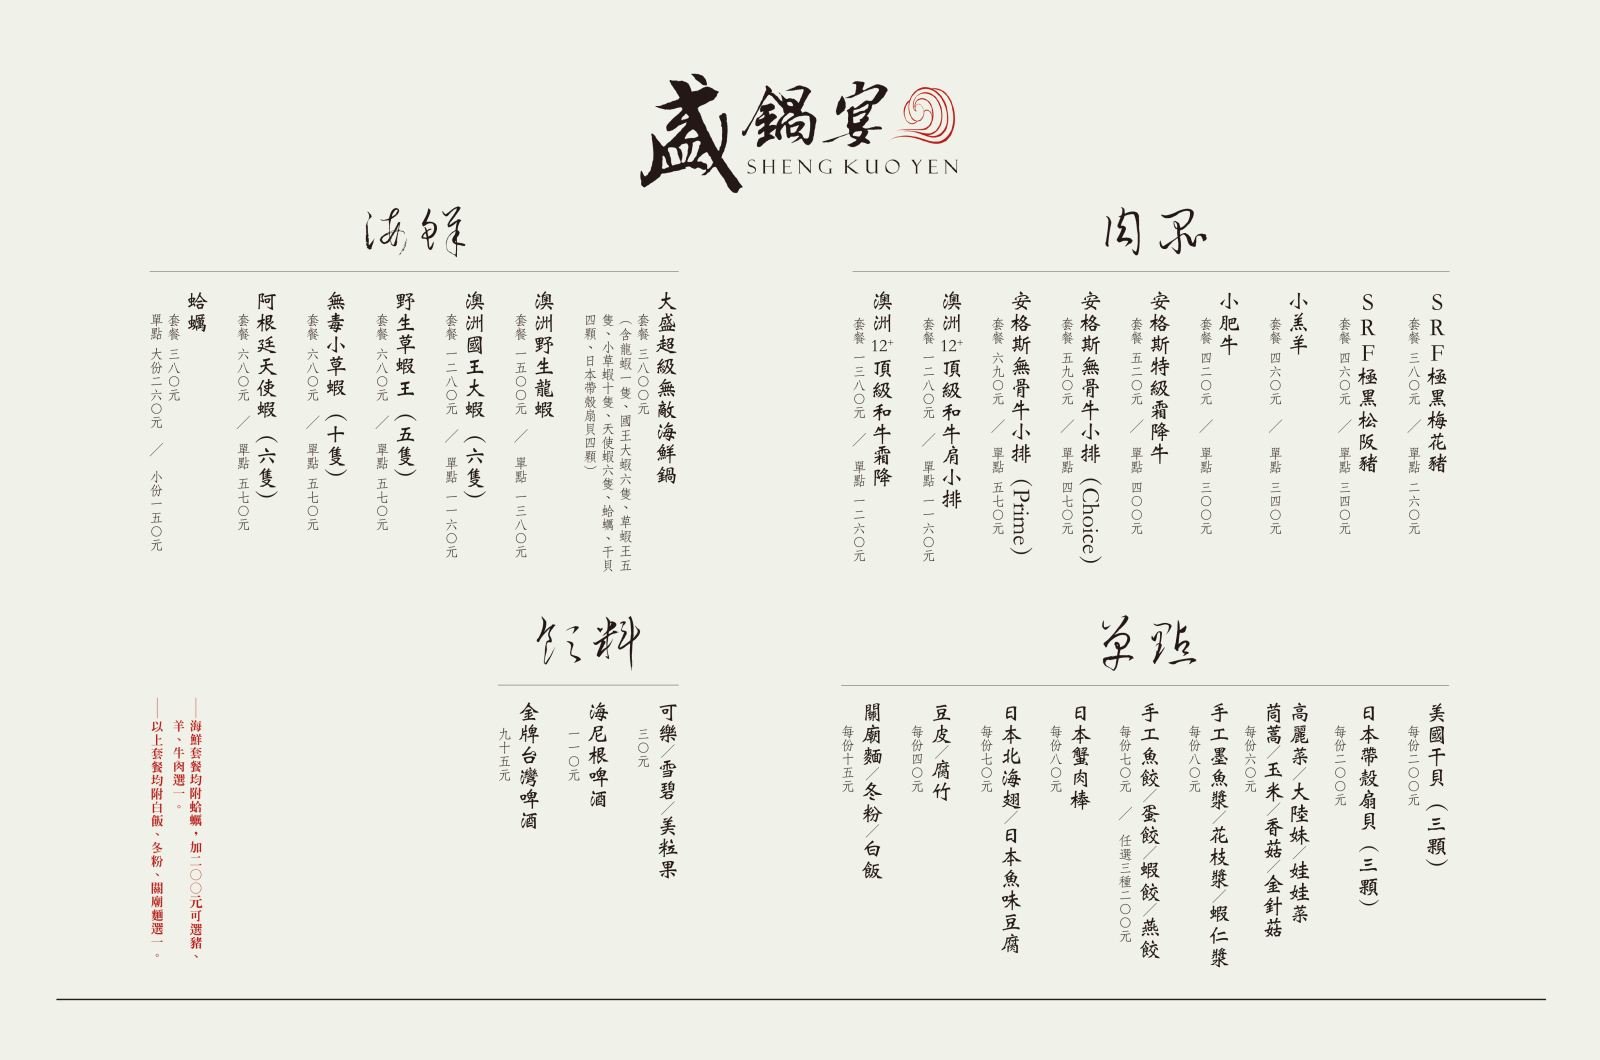 盛鍋宴
SHENG KUO YEN
肉品
SRF極黑梅花豬
套餐 三八〇元 ／ 單點 二六〇元
SRF極黑松阪豬
套餐 四六〇元 ／ 單點 三四〇元
小羔羊
套餐 四六〇元 ／ 單點 三四〇元
小肥牛
套餐 四二〇元 ／ 單點 三〇〇元
安格斯特級霜降牛
套餐 五二〇元 ／ 單點 四〇〇元
安格斯無骨牛小排（Choice）
套餐 五九〇元 ／ 單點 四七〇元
安格斯無骨牛小排（Prime）
套餐 六九〇元 ／ 單點 五七〇元
澳洲12+頂級和牛肩小排
套餐 一二八〇元 ／ 單點 一一六〇元
澳洲12+頂級和牛霜降
套餐 一三八〇元 ／ 單點 一二六〇元
海鮮
大盛超級無敵海鮮鍋
套餐 三八〇〇元
（含龍蝦一隻、國王大蝦六隻、草蝦王五
隻、小草蝦十隻、天使蝦六隻、蛤蠣、干貝
四顆、日本帶殼扇貝四顆）
澳洲野生龍蝦
套餐 一五〇〇元 ／ 單點 一三八〇元
澳洲國王大蝦（六隻）
套餐 一二八〇元 ／ 單點 一一六〇元
野生草蝦王（五隻）
套餐 六八〇元 ／ 單點 五七〇元
無毒小草蝦（十隻）
套餐 六八〇元 ／ 單點 五七〇元
阿根廷天使蝦（六隻）
套餐 六八〇元 ／ 單點 五七〇元
蛤蠣
套餐 三八〇元
單點 大份二六〇元 ／ 小份一五〇元
單點
美國干貝（三顆）
每份二〇〇元
日本帶殼扇貝（三顆）
每份二〇〇元
高麗菜／大陸妹／娃娃菜
茼蒿／玉米／香菇／金針菇
每份六〇元
手工墨魚漿／花枝漿／蝦仁漿
每份八〇元
手工魚餃／蛋餃／蝦餃／燕餃
每份七〇元 ／ 任選三種二〇〇元
日本蟹肉棒
每份八〇元
日本北海翅／日本魚味豆腐
每份七〇元
豆皮／腐竹
每份四〇元
關廟麵／冬粉／白飯
每份十五元
飲料
可樂／雪碧／美粒果
三〇元
海尼根啤酒
一一〇元
金牌台灣啤酒
九十五元
—海鮮套餐均附蛤蠣，加二〇〇元可選豬、
羊、牛肉選一。
—以上套餐均附白飯、冬粉、關廟麵選一。